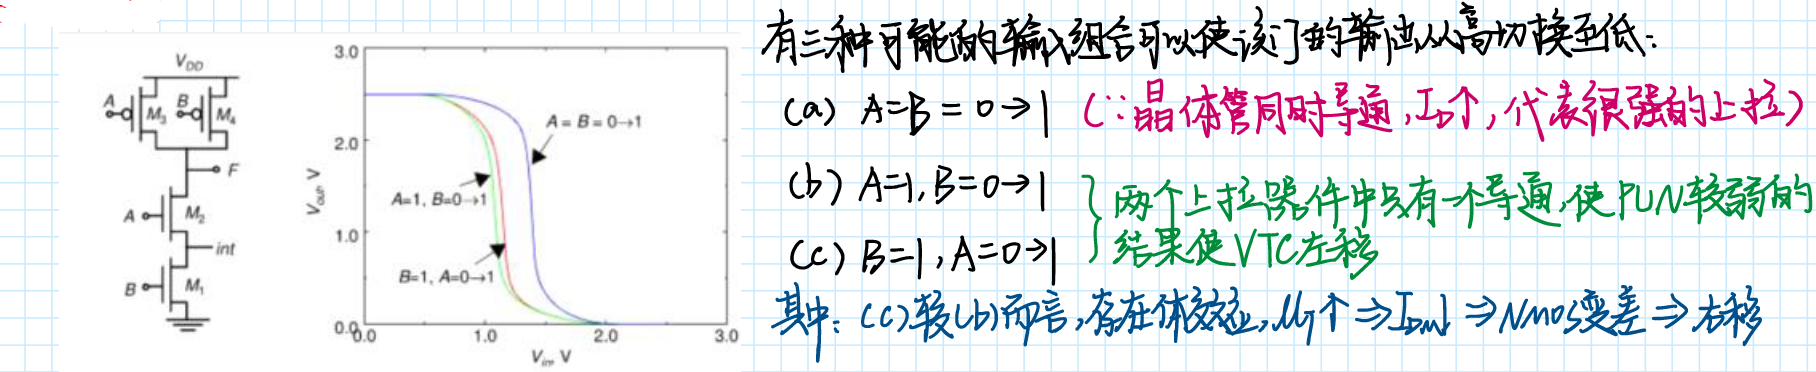 V_DD
A
M3
B
M4
F
A
M2
int
B
M1
3.0
2.0
1.0
0.0
V_out, V
A = B = 0→1
A=1, B=0→1
B=1, A=0→1
0.0 1.0 2.0 3.0
V_in, V
有三种可能的输入组合可以使该门的输出从高切换至低:
(a) A=B=0→1 (∵晶体管同时导通, I_D↑, 代表很强的上拉)
(b) A=1, B=0→1
(c) B=1, A=0→1
} 两个上拉器件中只有一个导通,使PUN较弱的
结果使VTC左移
其中: (c)较(b)而言,存在体效应, ↑ ⇒ I_DM↓ ⇒ Nmos变差 ⇒ 右移